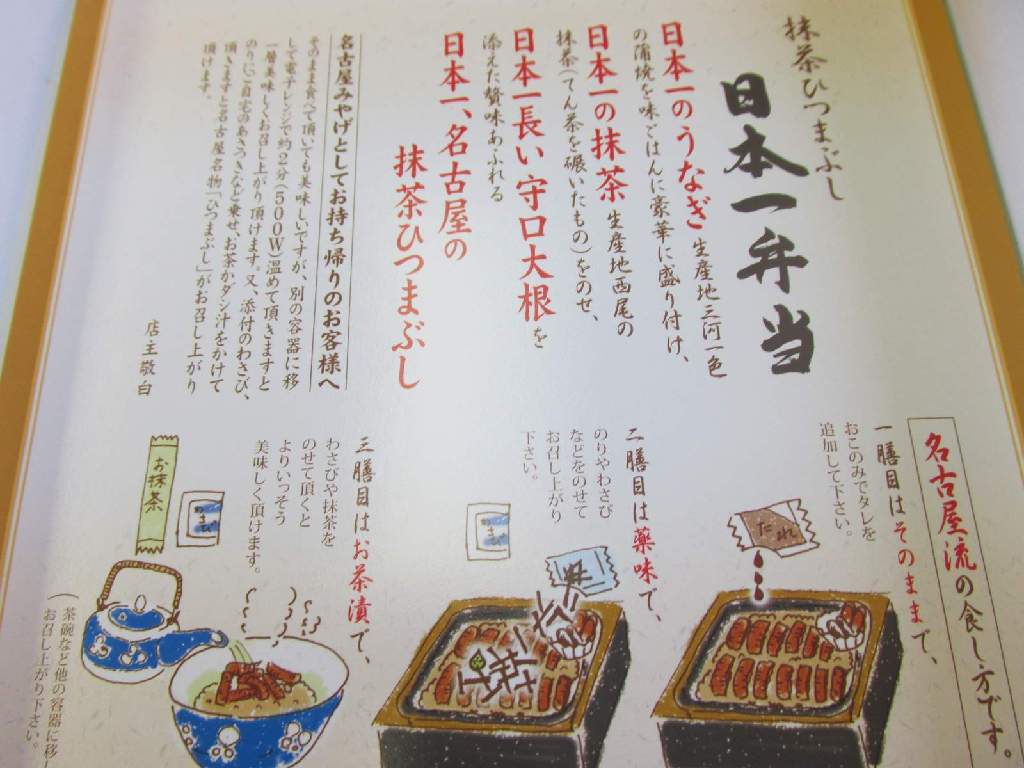 抹茶ひつまぶし
日本一弁当
日本一のうなぎ生産地三河一色
の蒲焼を味ごはんに豪華に盛り付け、
日本一の抹茶生産地西尾の
抹茶(てん茶を碾いたもの)をのせ、
日本一長い守口大根を
添えた贅味あふれる
日本一、名古屋の
抹茶ひつまぶし
名古屋みやげとしてお持ち帰りのお客様へ
そのまま食べて頂いても美味しいですが、別の容器に移
して電子レンジで約2分(500W)温めて頂きますと
一層美味しくお召し上がり頂けます。又、添付のわさび、
のり、ご自宅のあさつきなど乗せ、お茶かダシ汁をかけて
頂きますと名古屋名物「ひつまぶし」がお召し上がり
頂けます。
店主敬白
名古屋流の食し方です。
一膳目はそのままで、
おこのみでタレを
追加して下さい。
たれ
二膳目は薬味で、
のりやわさび
などをのせて
お召し上がり
下さい。
三膳目はお茶漬で、
わさびや抹茶を
のせて頂くと
よりいっそう
美味しく頂けます。
わさび
お抹茶
(茶碗など他の容器に移し
お召し上がり下さい。